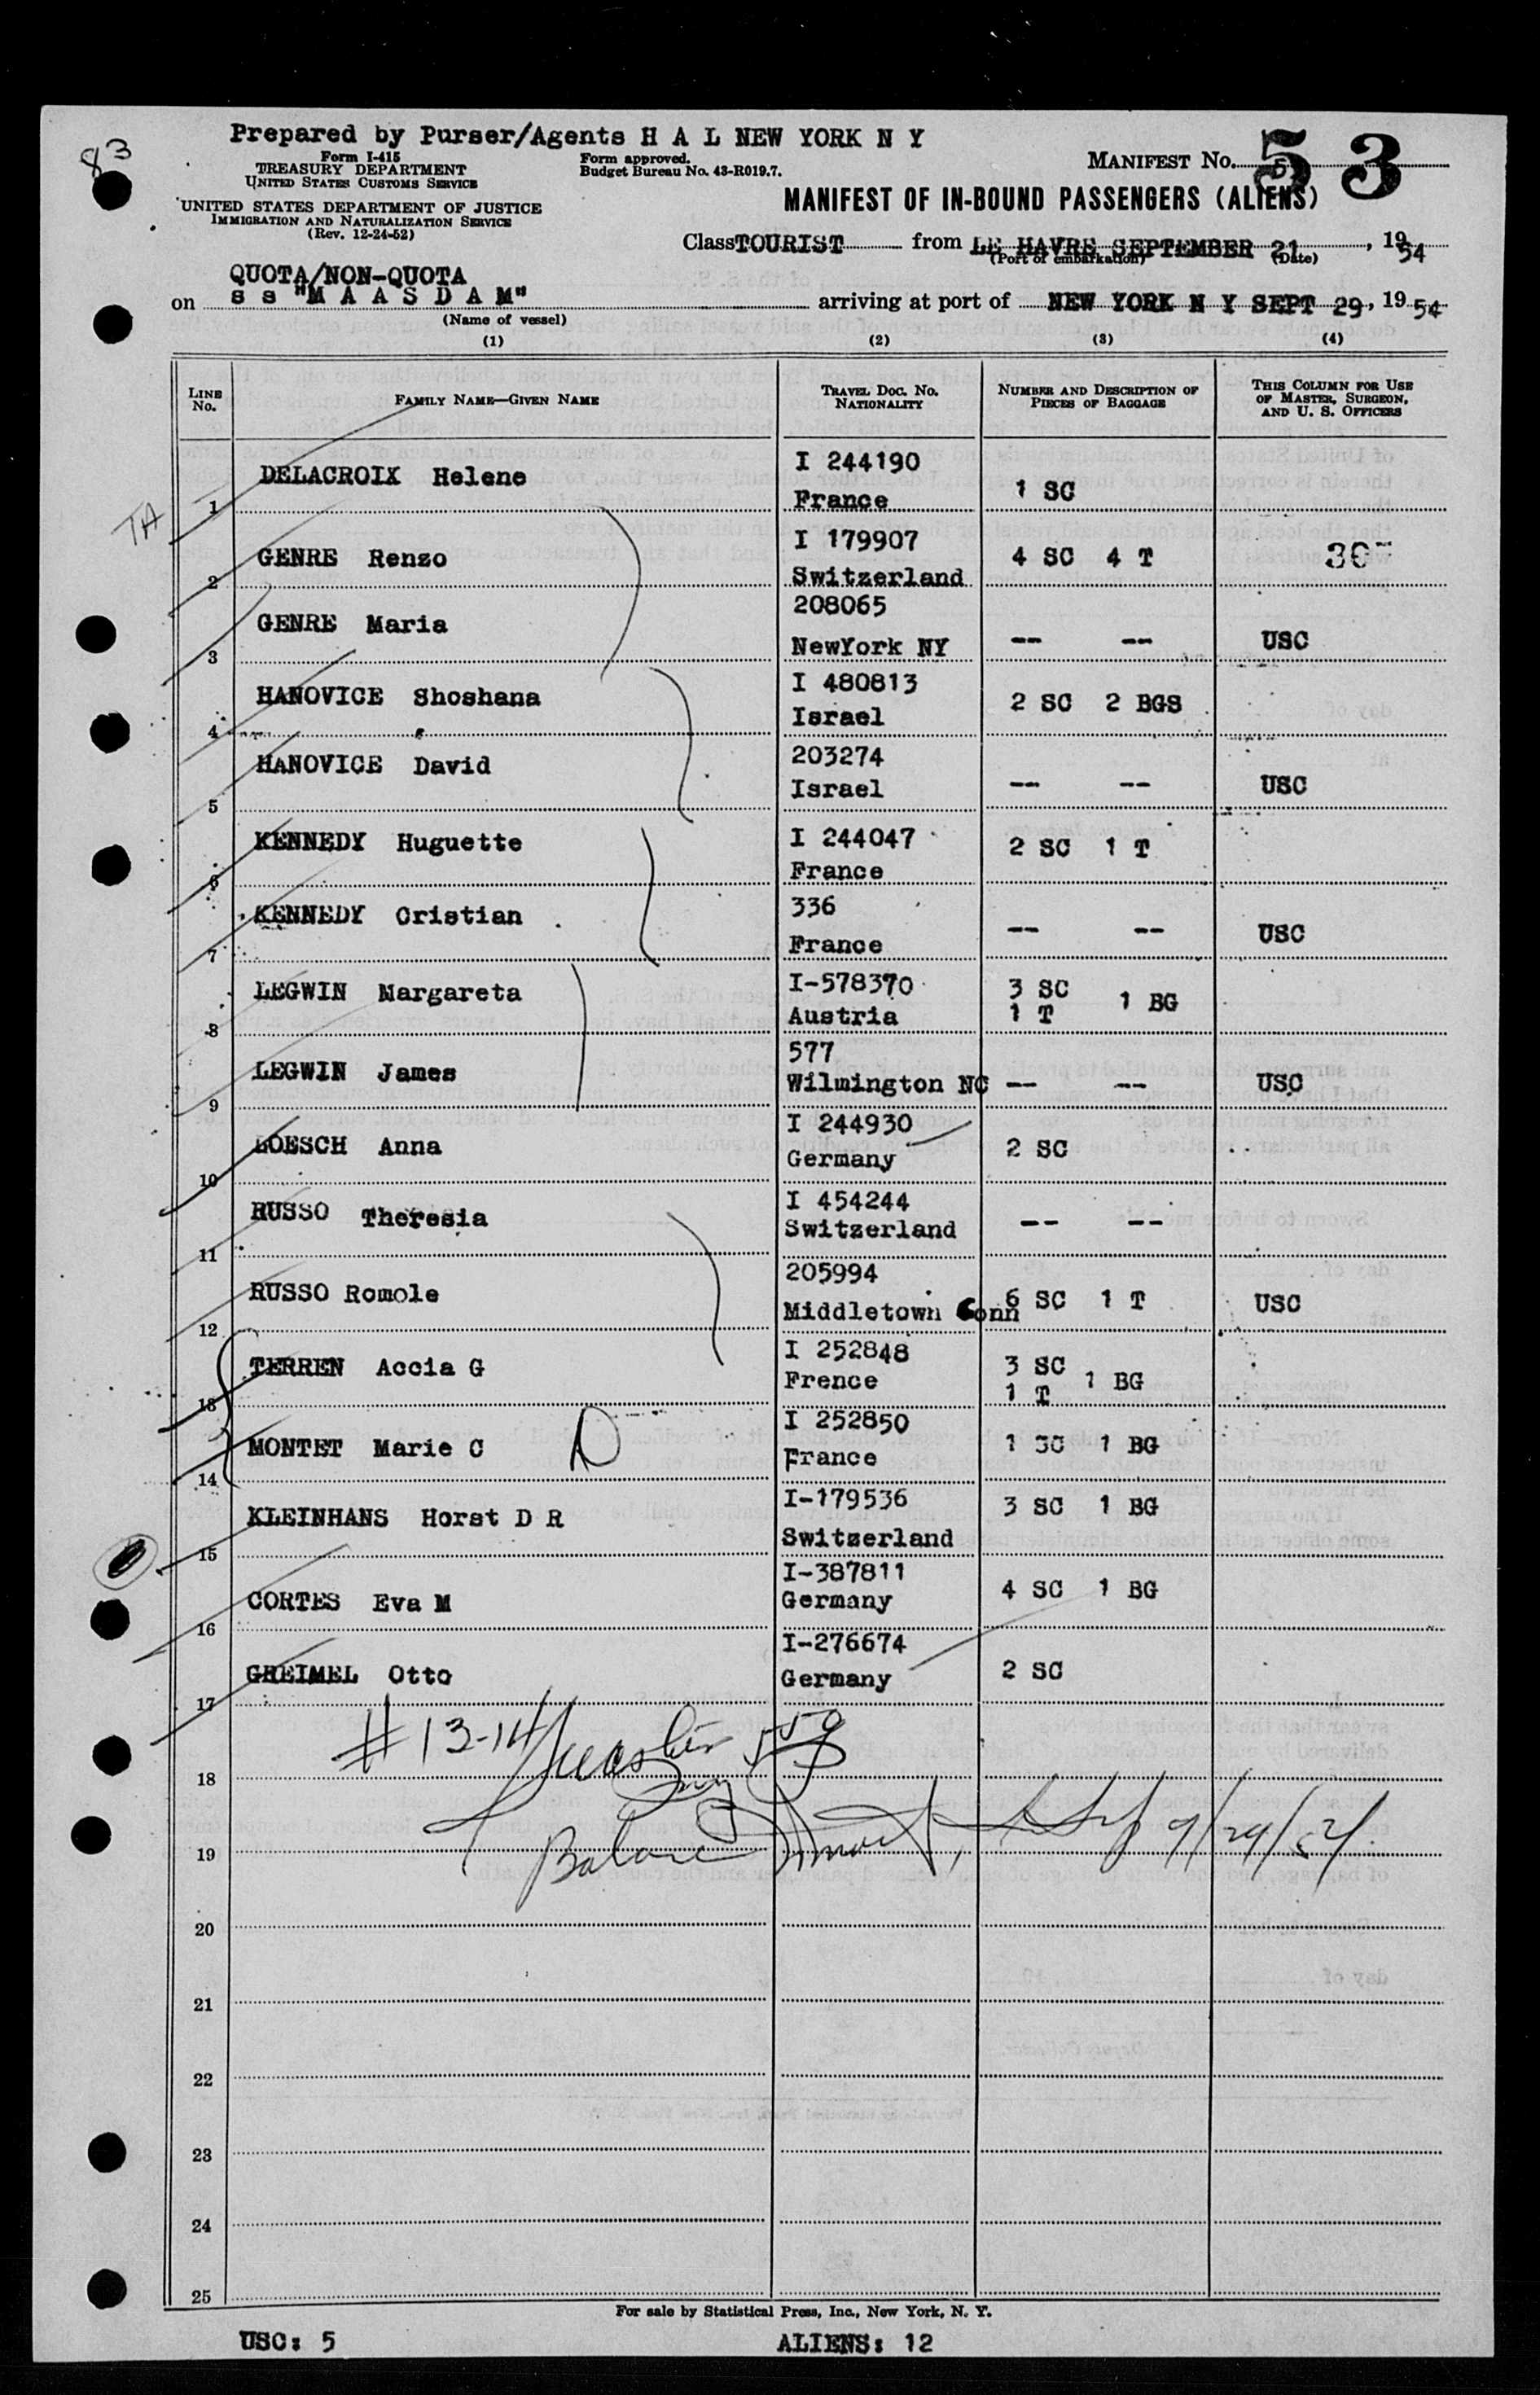 83
Prepared by Purser/Agents H A L NEW YORK N Y
Form I-415
TREASURY DEPARTMENT
UNITED STATES CUSTOMS SERVICE
Form approved.
Budget Bureau No. 43-R019.7.
MANIFEST No. 53
UNITED STATES DEPARTMENT OF JUSTICE
IMMIGRATION AND NATURALIZATION SERVICE
(Rev. 12-24-52)
MANIFEST OF IN-BOUND PASSENGERS (ALIENS)
Class TOURIST from LE HAVRE SEPTEMBER 21, 1954
(Port of embarkation) (Date)
QUOTA/NON-QUOTA
on s s "M A A S D A M" arriving at port of NEW YORK N Y SEPT 29, 1954
(Name of vessel)
(1) (2) (3) (4)
LINE No. FAMILY NAME—GIVEN NAME TRAVEL DOC. NO. NATIONALITY NUMBER AND DESCRIPTION OF PIECES OF BAGGAGE THIS COLUMN FOR USE OF MASTER, SURGEON, AND U. S. OFFICERS
TA
1 DELACROIX Helene I 244190 France 1 SC
2 GENRE Renzo I 179907 Switzerland 4 SC 4 T
3 GENRE Maria 208065 NewYork NY -- -- USC
4 HANOVICE Shoshana I 480813 Israel 2 SC 2 BGS
5 HANOVICE David 203274 Israel -- -- USC
6 KENNEDY Huguette I 244047 France 2 SC 1 T
7 KENNEDY Cristian 336 France -- -- USC
8 LEGWIN Margareta I-578370 Austria 3 SC 1 T 1 BG
9 LEGWIN James 577 Wilmington NC -- -- USC
10 LOESCH Anna I 244930 Germany 2 SC
11 RUSSO Theresia I 454244 Switzerland -- --
12 RUSSO Romole 205994 Middletown Conn 6 SC 1 T USC
13 TERREN Accia G I 252848 Frence 3 SC 1 T 1 BG
14 MONTET Marie C I 252850 France 1 SC 1 BG
15 KLEINHANS Horst D R I-179536 Switzerland 3 SC 1 BG
16 CORTES Eva M I-387811 Germany 4 SC 1 BG
17 GREIMEL Otto I-276674 Germany 2 SC
# 13-14
18
19 9/29/54
20
21
22
23
24
25
For sale by Statistical Press, Inc., New York, N. Y.
USC: 5 ALIENS: 12